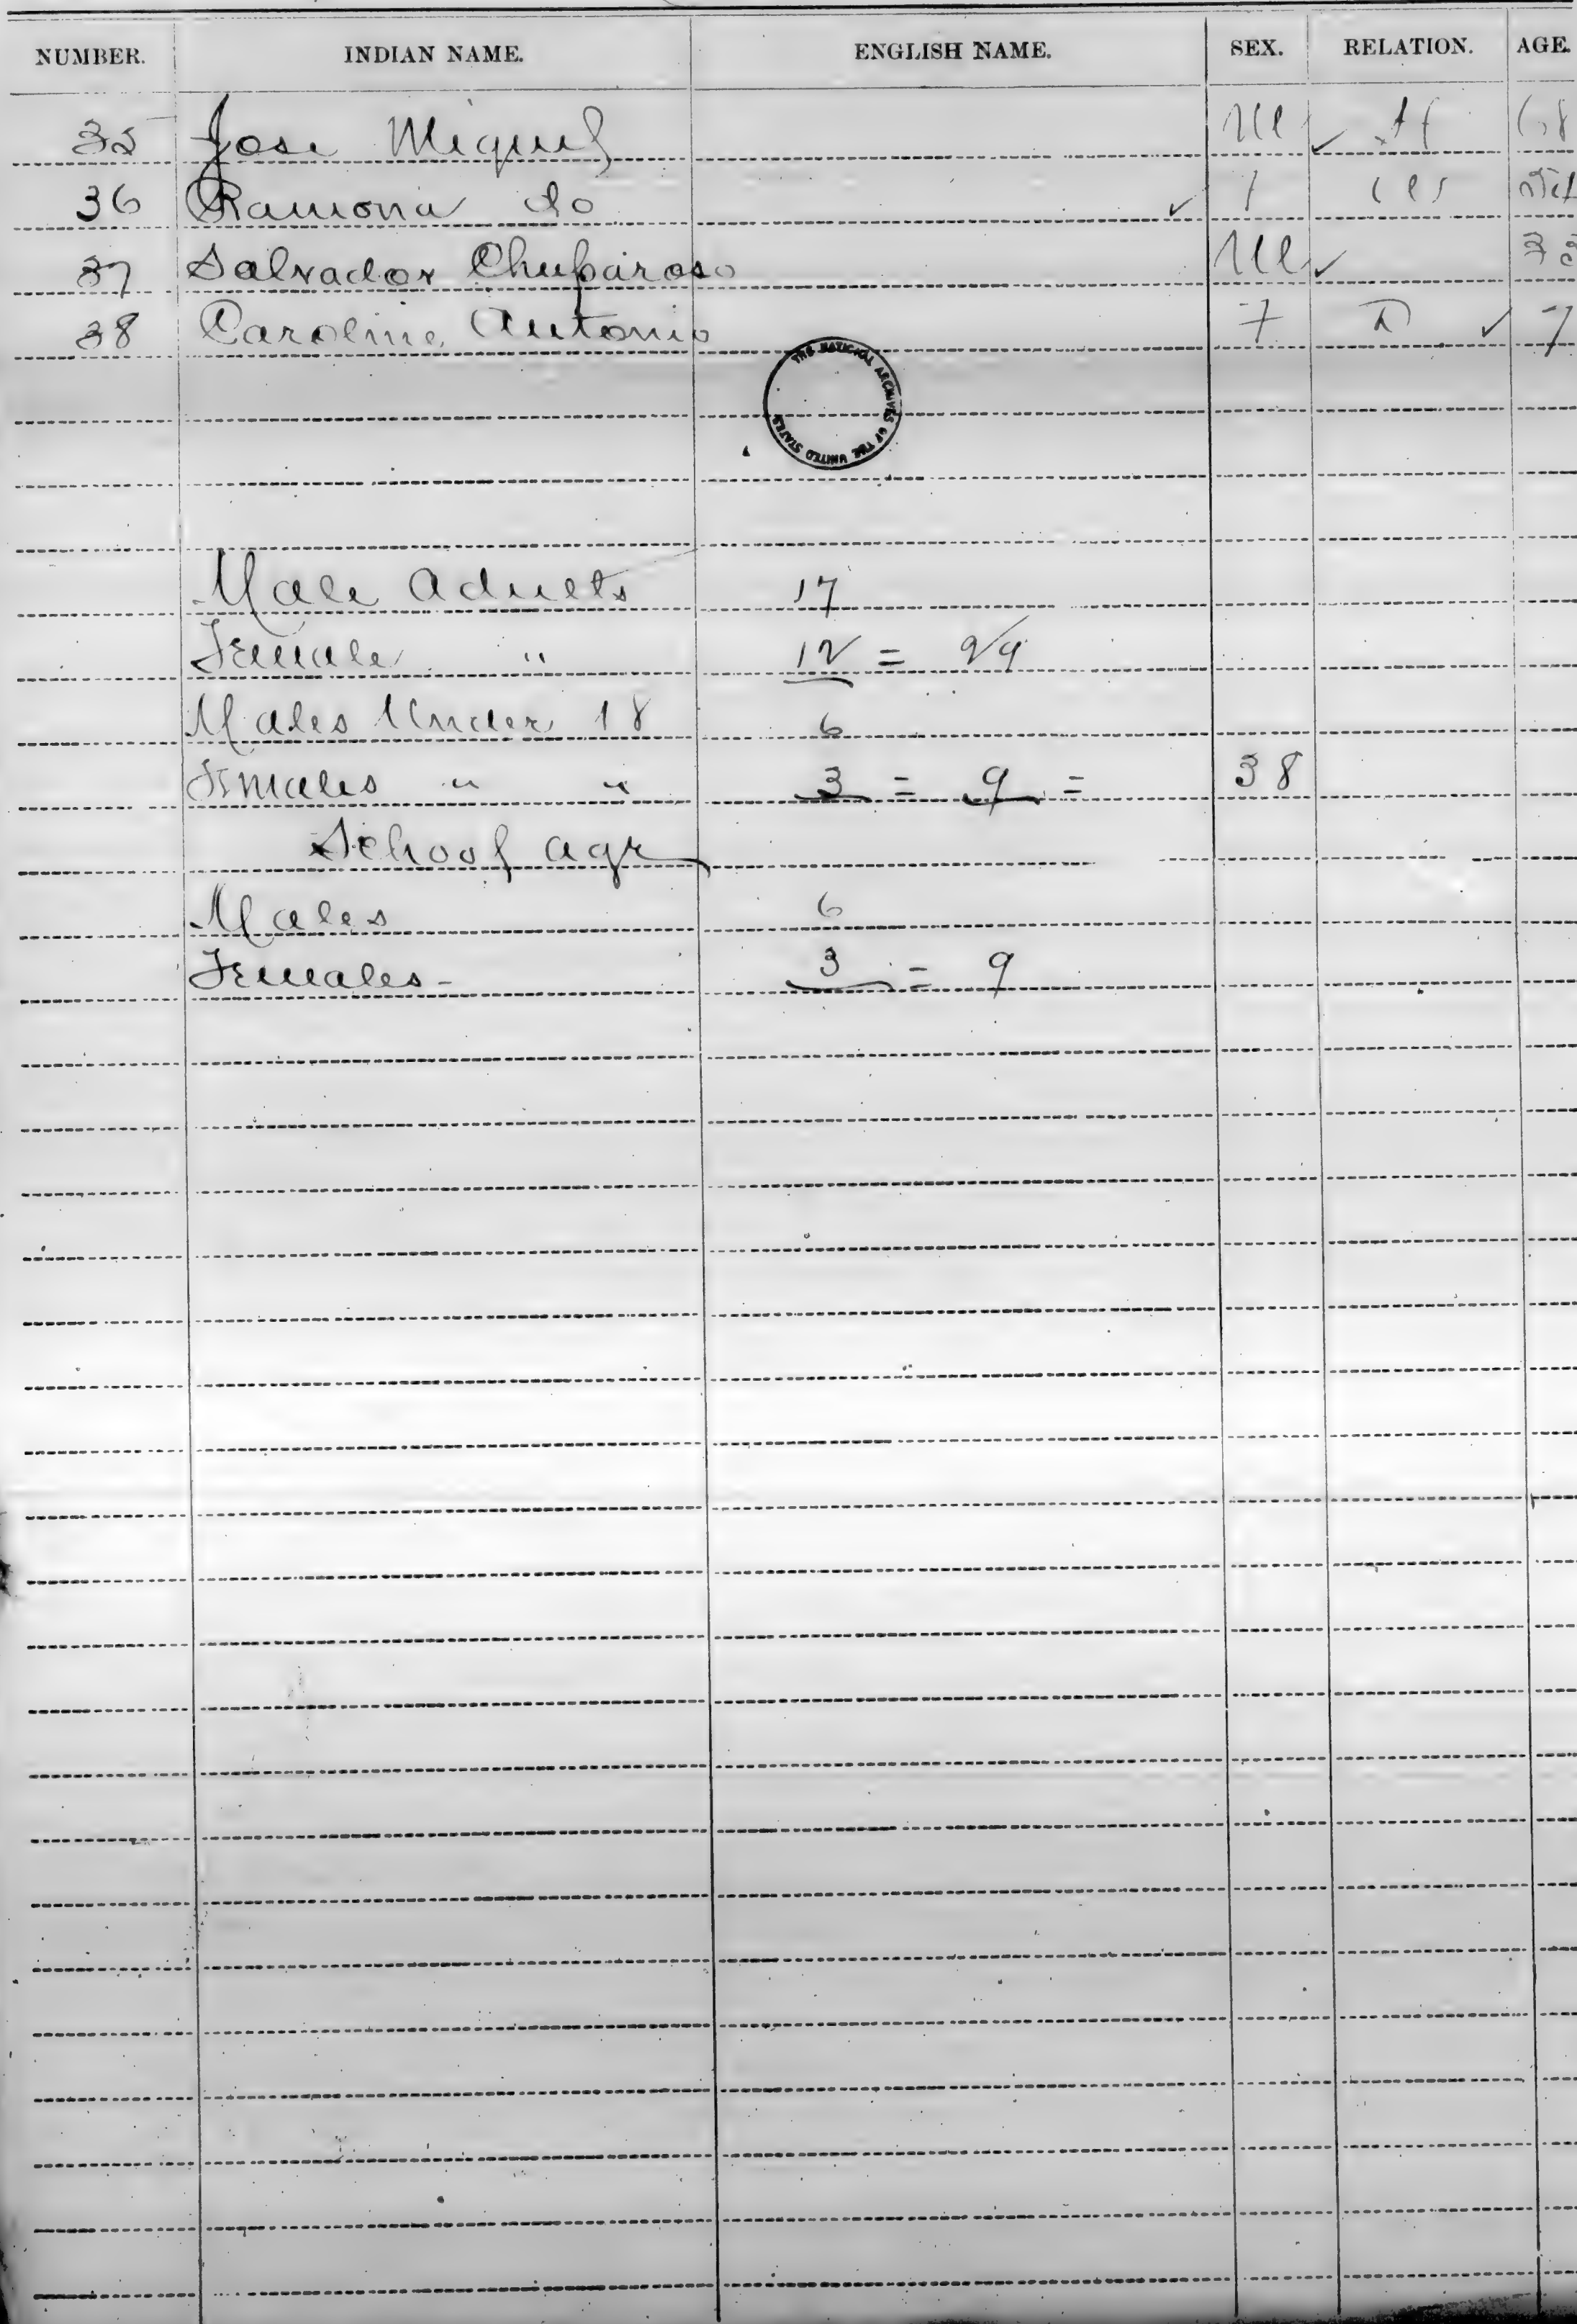 NUMBER. INDIAN NAME. ENGLISH NAME. SEX. RELATION. AGE.
35 Jose Miguel M ✓ H 68
36 Ramona do ✓ F
37 Salvador Chuparoso M ✓
38 Caroline Antonio F D ✓ 7
THE NATIONAL ARCHIVES OF THE UNITED STATES
Male Adults 17
Female " 12 = 29
Males Under 18 6
Females " " 3 = 9 = 38
School age
Males 6
Females - 3 = 9